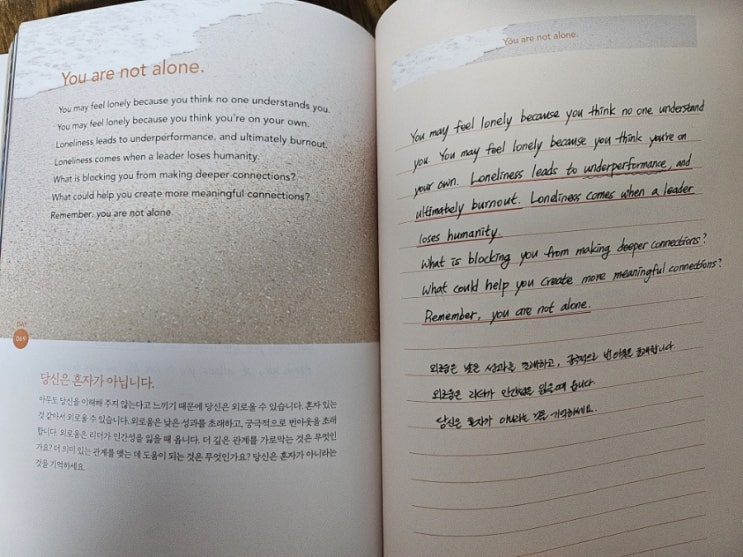 You are not alone.
You may feel lonely because you think no one understands you.
You may feel lonely because you think you're on your own.
Loneliness leads to underperformance, and ultimately burnout.
Loneliness comes when a leader loses humanity.
What is blocking you from making deeper connections?
What could help you create more meaningful connections?
Remember, you are not alone.
DAY
069
당신은 혼자가 아닙니다.
아무도 당신을 이해해 주지 않는다고 느끼기 때문에 당신은 외로울 수 있습니다. 혼자 있는
것 같아서 외로울 수 있습니다. 외로움은 낮은 성과를 초래하고, 궁극적으로 번아웃을 초래
합니다. 외로움은 리더가 인간성을 잃을 때 옵니다. 더 깊은 관계를 가로막는 것은 무엇인
가요? 더 의미 있는 관계를 맺는 데 도움이 되는 것은 무엇인가요? 당신은 혼자가 아니라는
것을 기억하세요.
You are not alone.
You may feel lonely because you think no one understand
you. You may feel lonely because you think you're on
your own. Loneliness leads to underperformance, and
ultimately burnout. Loneliness comes when a leader
loses humanity.
What is blocking you from making deeper connections?
What could help you create more meaningful connections?
Remember, you are not alone.
외로움은 낮은 성과를 초래하고, 궁극적으로 번아웃을 초래합니다.
외로움은 리더가 인간성을 잃을때 옵니다.
당신은 혼자가 아니라는 것을 기억하세요.